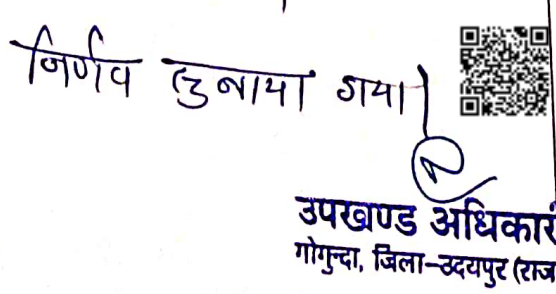 निर्णय सुनाया गया।
उपखण्ड अधिकारी
गोगुन्दा, जिला-उदयपुर (राज